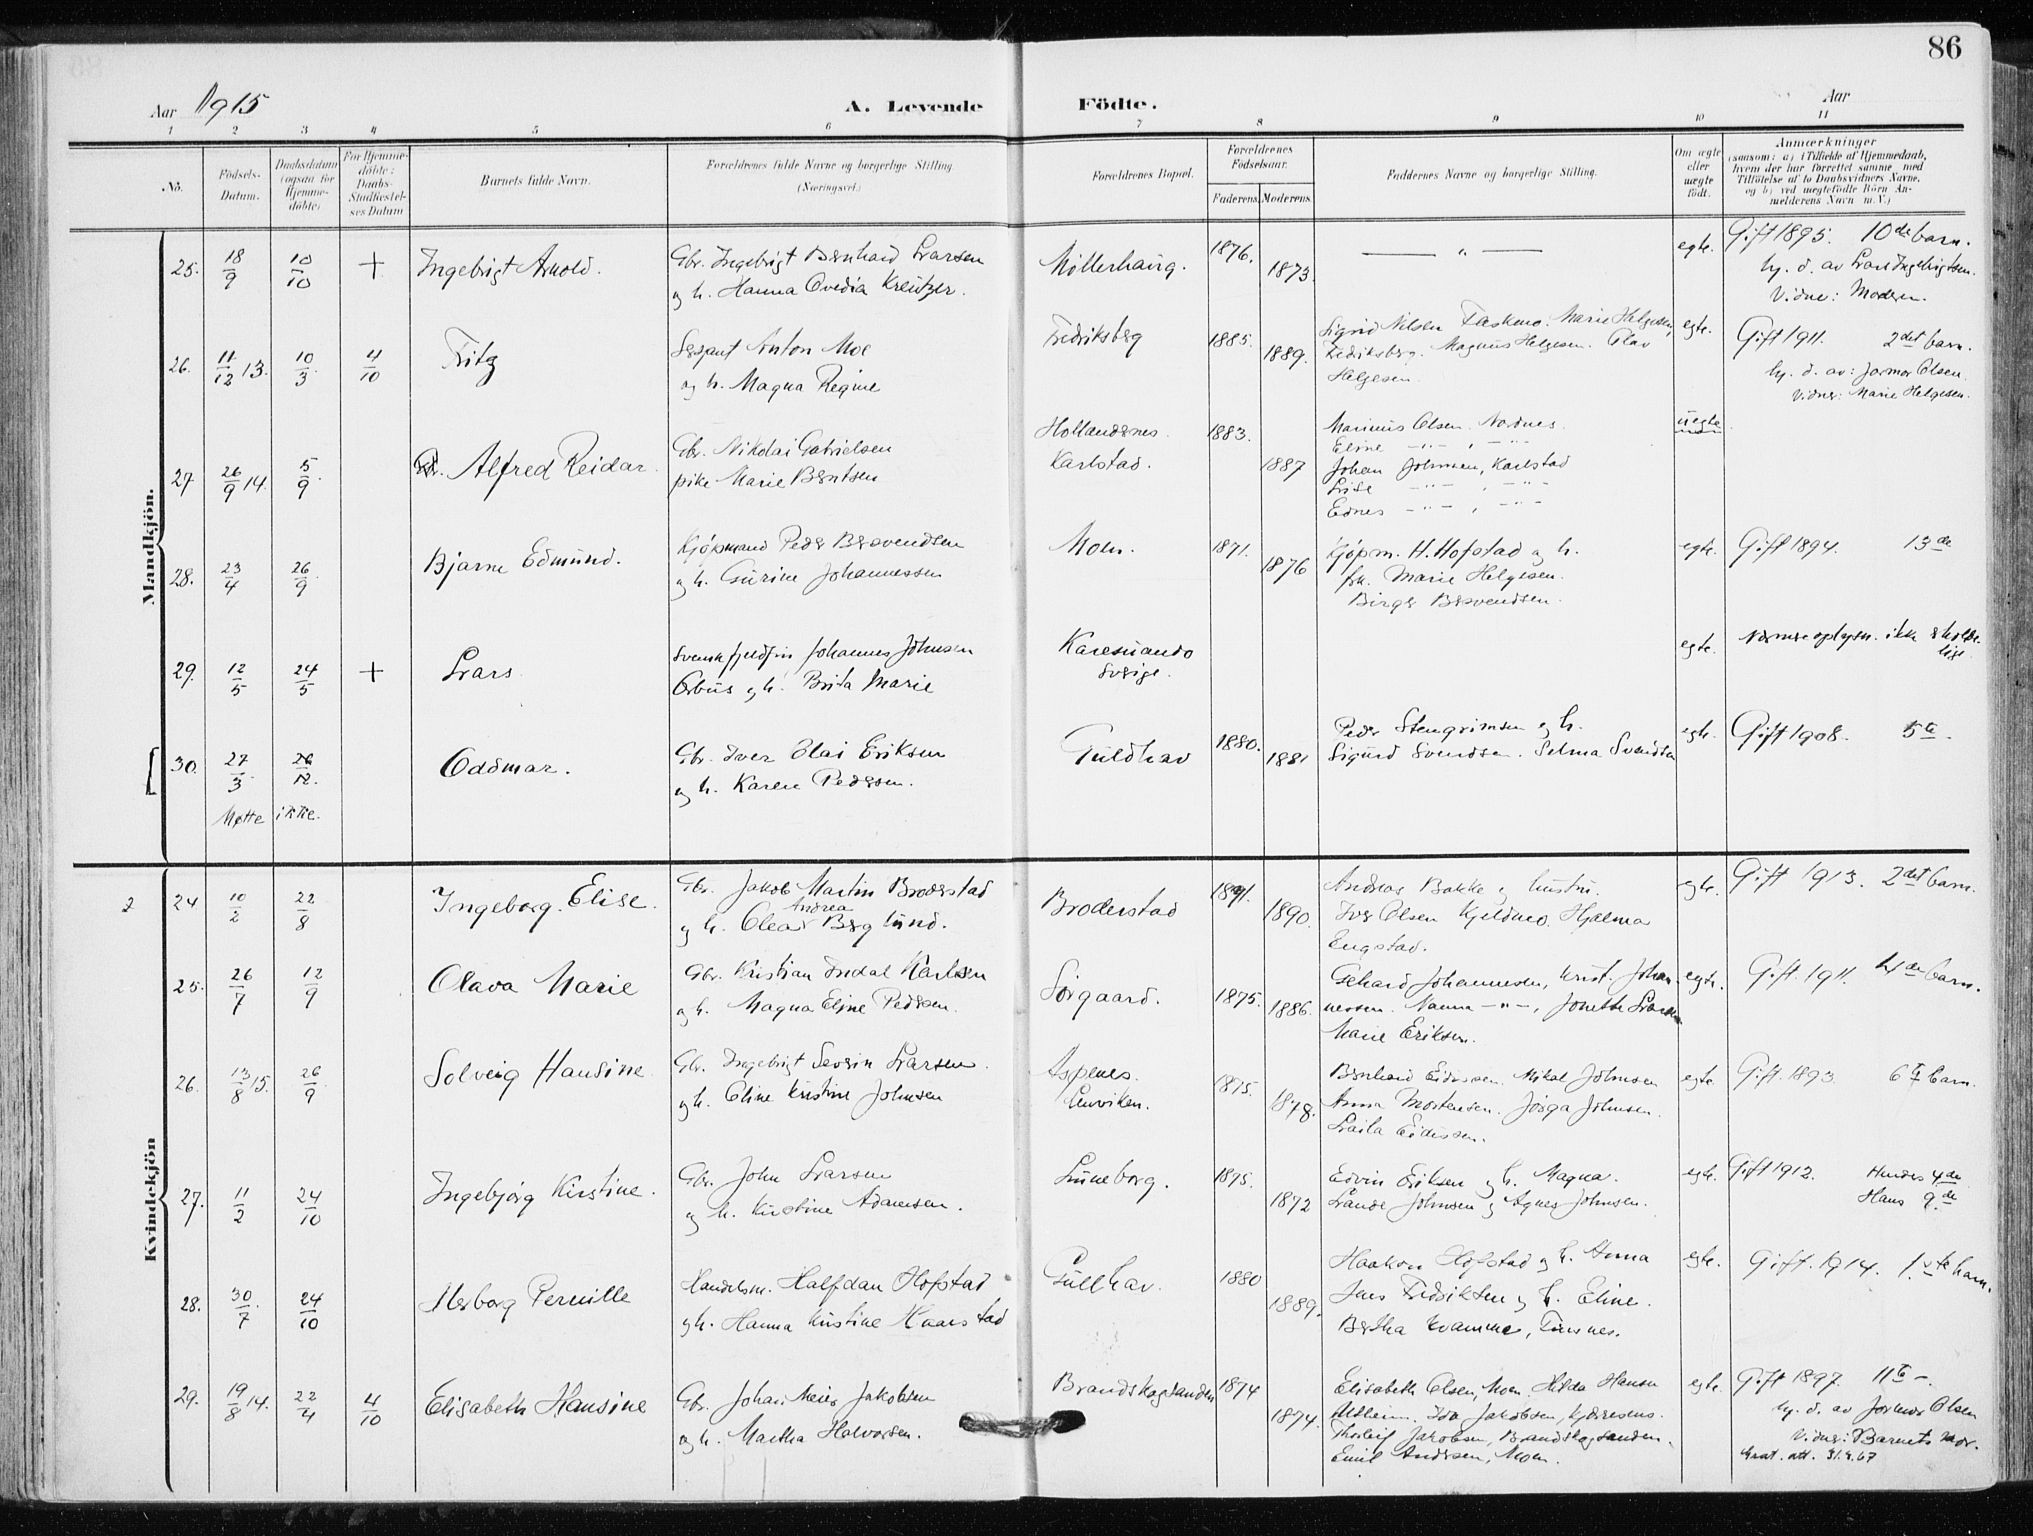 86
Aar 1915
A. Levende Födte.
Aar
1 2 3 4 5 6 7 8 9 10 11
No.
Födsels-Datum.
Daabsdatum (ogsaa for Hjemme-döbte)
For Hjemme-döbte: Daabs-Stadfæstel-ses Datum
Barnets fulde Navn.
Forældrenes fulde Navne og borgerlige Stilling. (Næringsvei.)
Forældrenes Bopæl.
Forældrenes Födselsaar.
Faderens. Moderens.
Faddernes Navne og borgerlige Stilling.
Om ægte eller uægte födt.
Anmærkninger
(saasom: a) i Tilfælde af Hjemmedaab,
hvem der har forrettet samme, med
Tilföielse af to Daabsvidners Navne,
og b) ved uægtefödte Börn An-
melderens Navn m. V.)
Mandkjön.
25. 18/9 10/10 + Ingebrigt Arnold. Gbr. Ingebrigt Bernhard Larsen Möllerhaug. 1876. — „ — egte. Gift 1895. 10de barn.
og h. Hanna Ovedia Kreutzer. 1873. hj. d. av Lars Ingebrigtsen.
Vidne: Moderen.
26. 11/12 13. 10/3. 4/10 Fritz Sersjant Anton Moe Fredriksberg 1885. Sigrid Nilsen Taskmo. Marie Helgesen, egte. Gift 1911. 2det barn.
og h. Magna Regine 1889. Fredriksberg. Magnus Helgesen. Olav
Helgesen. hj. d. av: Jormor Olsen.
Vidner: Marie Helgesen.
27 26/9 14. 5/9 Alfred Reidar. Gbr. Nikolai Gabrielsen Hollandsnes. 1883. Marinus Olsen Nordnes. uegte
pike Marie Berntsen Karlstad. 1887 Eline — „ — , — „ —
Johan Johnsen, Karlstad
Lise — „ — , — „ —
Ednes — „ — , — „ —
28. 23/4 26/9. Bjarne Edmund. Kjöpmand Peder Bersvendsen Moen. 1871. Kjöpm. H. Hofstad og h. egte. Gift 1894. 13de
og h. Gurine Johannessen 1876 frk. Marie Helgesen.
Birger Bersvendsen.
29. 12/5 24/5 + Lars Svenskfjeldfin Johannes Johnsen Karesuando egte. Nærmere oplysn. ikke erholde-
Orbus og h. Brita Marie Sverige. lige.
30. 27/3. 26/12. Oddmar. Gbr. Iver Olai Eriksen Guldhav 1880. Peder Stengrimsen og h. egte. Gift 1908. 5te
og h. Karen Pedersen. 1881 Sigurd Svendsen. Selma Svendsen
Møtte ikke.
Kvindekjön
2 24 10/2 22/8 Ingeborg Elise. Gbr. Jakob Martin Broderstad Broderstad 1891. Andreas Bakke og hustru. egte. Gift 1913. 2det barn.
og h. Olea Andrea Berglund. 1890. Iver Olsen Kjeldmo. Hjelma
Engstad.
25. 26/7 12/9 Olava Marie Gbr. Kristian Indal Karlsen Sörgaard. 1875. Gehard Johannesen, Krist. Johan- egte. Gift. 1911. 4de barn.
og h. Magna Eline Pedersen. 1886. nessen. Nanna — „ —, Jonette Larsen
Marie Eriksen.
26. 13/8 15. 26/9 Solveig Hansine Gbr. Ingebrigt Severin Larsen Aspenes. 1875. Bernhard Eidissen. Mikal Johnsen egte. Gift. 1893. 6te barn.
og h. Oline Kristine Johnsen Lenviken. 1878. Anna Mortensen. Jörga Johnsen.
Laila Eidissen.
27. 11/2 24/10 Ingebjörg Kirstine. Gbr. John Larsen Luneborg. 1875. Edvin Eriksen og h. Magna. egte. Gift 1912. Hendes 4de
og h. Kirstine Adamsen. 1872 Lande Johnsen og Agnes Johnsen. Hans 9de
28. 30/7. 24/10 Herborg Pernille Handelsm. Halfdan Hofstad Gullhav. 1880 Haakon Hofstad og h. Anna egte. Gift. 1914. 1ste barn.
og h. Hanna Kristine Kvarstad 1889. Jens Fredriksen og h. Eline.
Bertha Kvamme, Finsnes.
29. 19/8 14. 22/4 4/10 Elisabeth Hansine Gbr. Johan Meier Jakobsen Brandskogsanden 1874 Elisabeth Olsen, Moen. Hilda Hansen egte. Gift 1897. 11te —.
og h. Martha Halvorsen. 1874. Ida Jakobsen, hj. d. av Jormor Olsen
Thorleif Jakobsen, Brandskogsanden. Vidner: Barnets mor.
Emil Andersen, Moen. Grat. att. 31.4.67